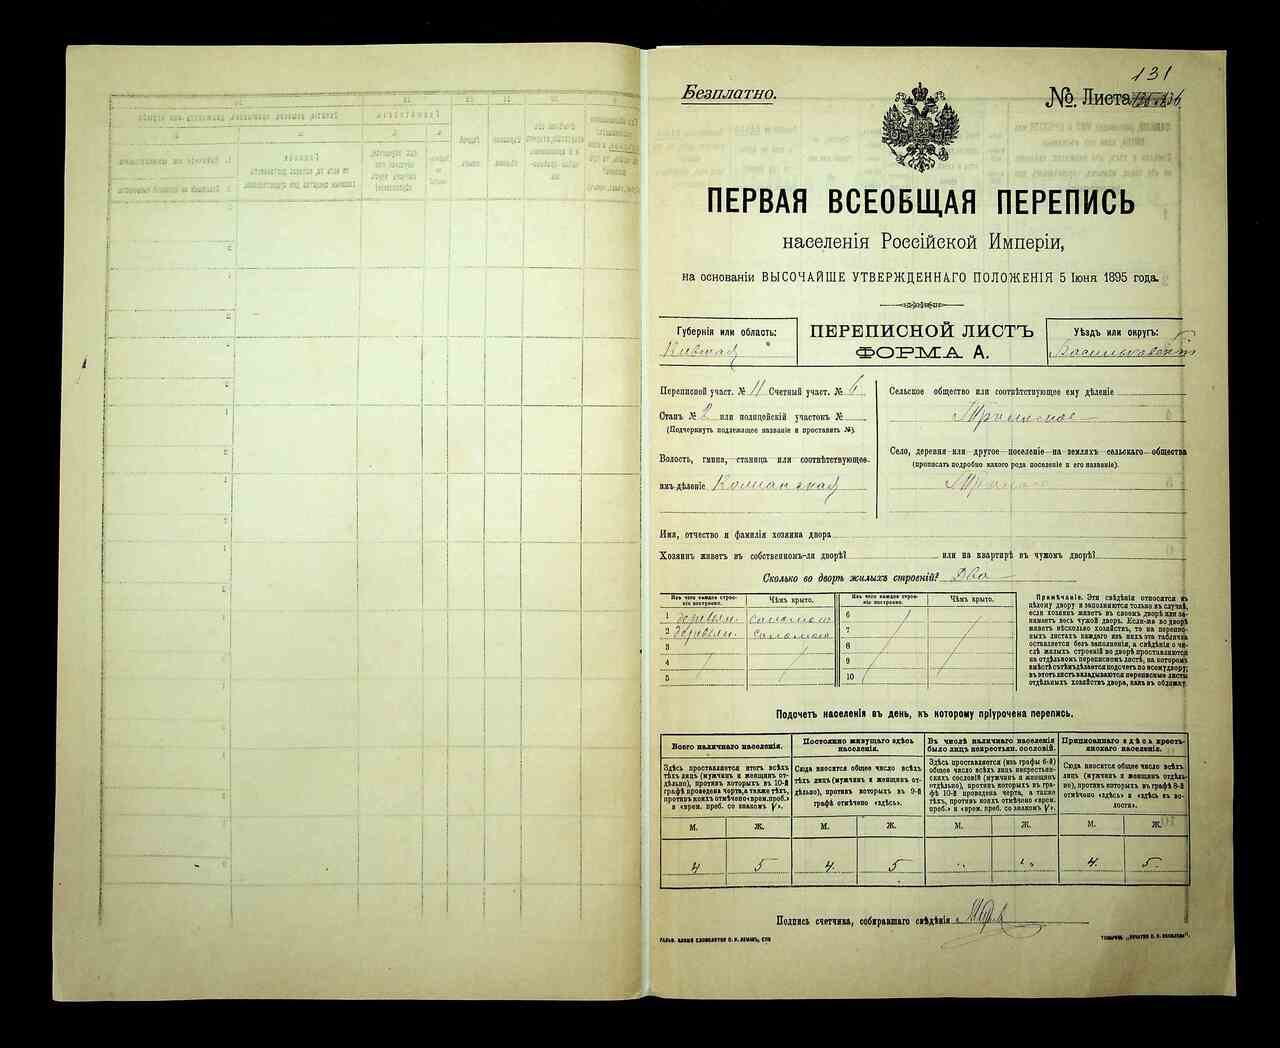 131
Безплатно.
№ Листа 136
ПЕРВАЯ ВСЕОБЩАЯ ПЕРЕПИСЬ
населенія Россійской Имперіи,
на основаніи ВЫСОЧАЙШЕ УТВЕРЖДЕННАГО ПОЛОЖЕНІЯ 5 Іюня 1895 года.
Губернія или область:
Кіевская
ПЕРЕПИСНОЙ ЛИСТЪ
ФОРМА А.
Уѣздъ или округъ:
Васильковскій
Переписной участ. № 11 Счетный участ. № 6
Станъ № 2 или полицейскій участокъ №
(Подчеркнуть подлежащее названіе и проставить №).
Волость, гмина, станица или соотвѣтствующее
имъ дѣленіе
Сельское общество или соотвѣтствующее ему дѣленіе
Село, деревня или другое поселеніе на земляхъ сельскаго общества
(прописать подробно какого рода поселеніе и его названіе).
Имя, отчество и фамилія хозяина двора
Хозяинъ живетъ въ собственномъ-ли дворѣ? или на квартирѣ въ чужомъ дворѣ?
Сколько во дворѣ жилыхъ строеній? Два
Изъ чего каждое строеніе построено.
Чѣмъ крыто.
Изъ чего каждое строеніе построено.
Чѣмъ крыто.
1 деревян. соломою
2 деревян. соломою
3
4
5
6
7
8
9
10
Примѣчаніе. Эти свѣдѣнія относятся къ
цѣлому двору и заполняются только въ случаѣ,
если хозяинъ живетъ въ своемъ дворѣ или занимаетъ
весь чужой дворъ. Если-же во дворѣ
живетъ нѣсколько хозяйствъ, то на переписныхъ
листахъ каждаго изъ нихъ эта табличка
оставляется безъ заполненія, а свѣдѣнія о числѣ
жилыхъ строеній во дворѣ проставляются
на отдѣльномъ переписномъ листѣ, на которомъ
вмѣстѣ съ тѣмъ дѣлается подсчетъ по всему двору;
въ этотъ листъ вкладываются переписные листы
отдѣльныхъ хозяйствъ двора, какъ въ обложку.
Подсчетъ населенія въ день, къ которому пріурочена перепись.
Всего наличнаго населенія.
Здѣсь проставляется итогъ всѣхъ
тѣхъ лицъ (мужчинъ и женщинъ отдѣльно),
противъ которыхъ въ 10-й
графѣ проведена черта, а также тѣхъ,
противъ коихъ отмѣчено «врем. преб.»
и «врем. преб. со знакомъ V».
Постоянно живущаго здѣсь
населенія.
Сюда вносится общее число всѣхъ
тѣхъ лицъ (мужчинъ и женщинъ отдѣльно),
противъ которыхъ въ 9-й
графѣ отмѣчено «здѣсь».
Въ числѣ наличнаго населенія
было лицъ некрестьян. сословій.
Здѣсь проставляется (изъ графы 6-й)
общее число всѣхъ лицъ некрестьянскихъ
сословій (мужчинъ и женщинъ
отдѣльно), противъ которыхъ въ графѣ
10-й проведена черта, а также
тѣхъ, противъ коихъ отмѣчено «врем.
преб.» и «врем. преб. со знакомъ V».
Приписаннаго здѣсь крестьянскаго
населенія.
Сюда вносится общее число всѣхъ
лицъ (мужчинъ и женщинъ отдѣльно),
противъ которыхъ въ графѣ 8-й
отмѣчено «здѣсь» и «здѣсь въ волости».
М. Ж. М. Ж. М. Ж. М. Ж.
4 5 4 5 4 5
Подпись счетчика, собиравшаго свѣдѣнія